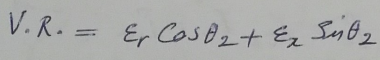 V.R. = εr Cosθ2 + εx Sinθ2